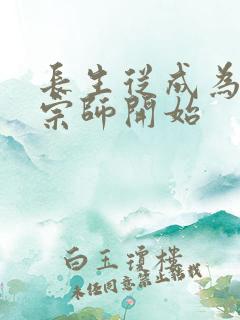 長生從成為
宗師開始
白玉瓊樓
未經同意禁止轉載